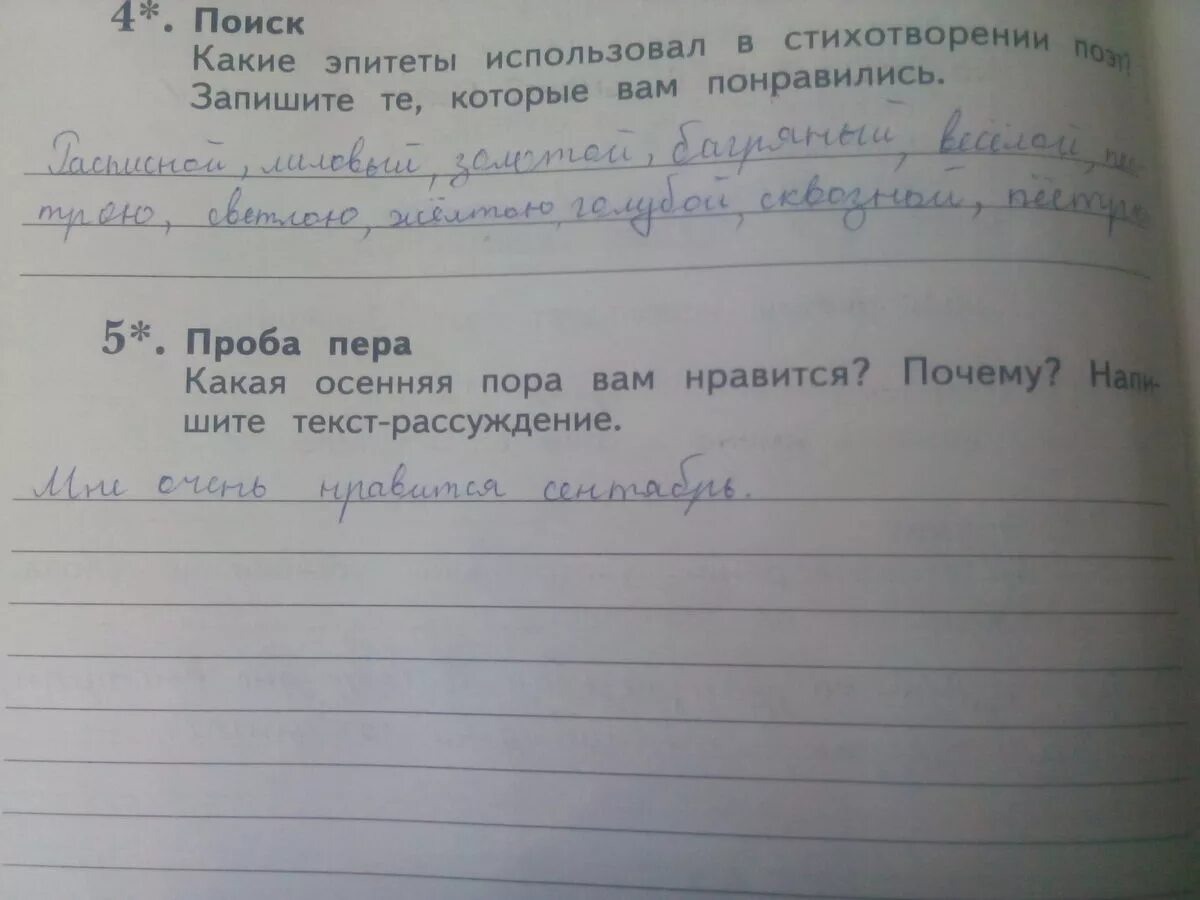 4*. Поиск
Какие эпитеты использовал в стихотворении поэт?
Запишите те, которые вам понравились.
Расписной, лиловый, золотой, багряный, весёлой, пёс-
трою, светлою, жёлтою, голубой, сквозной, пёстр
5*. Проба пера
Какая осенняя пора вам нравится? Почему? Напи-
шите текст-рассуждение.
Мне очень нравится сентябрь.